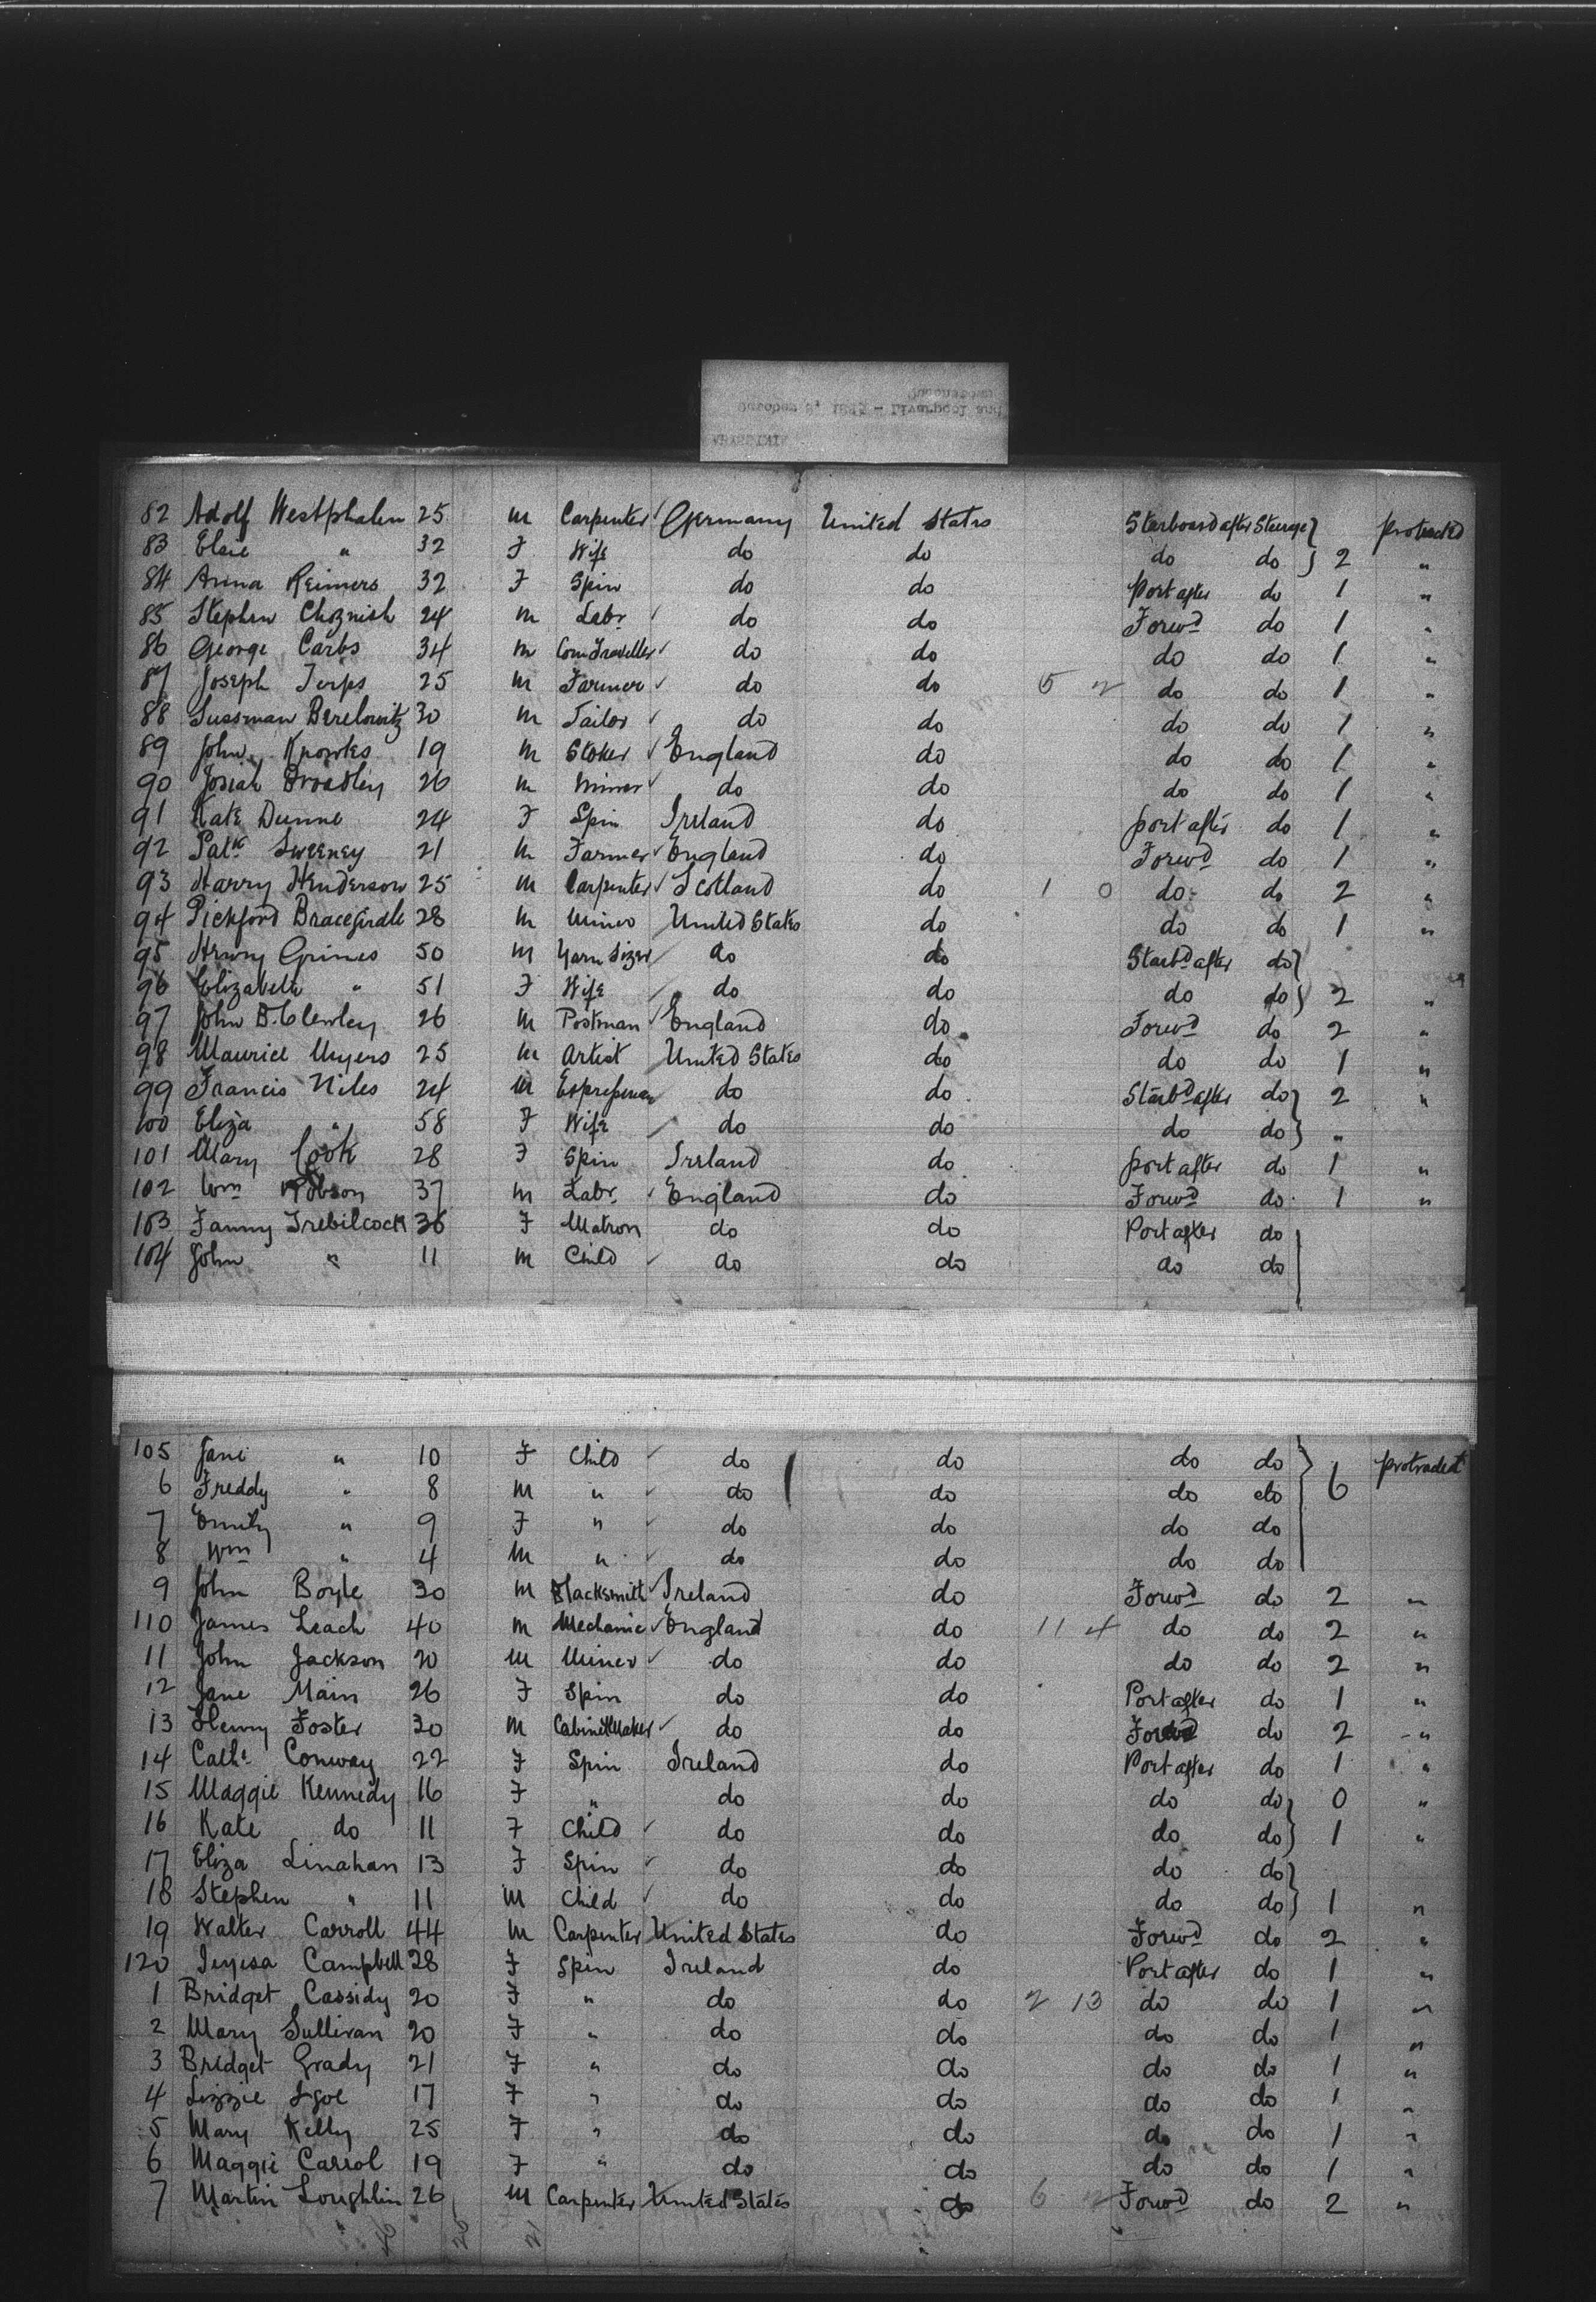 82 Adolf Westphalen 25 M Carpenter Germany United States Starboard after Steerage protracted
83 Elsie " 32 F Wife do do do do 2 "
84 Anna Reimers 32 F Spin do do Port after do 1 "
85 Stephen 24 M Labr do do Forwd do 1 "
86 George Carbs 34 M Com Traveller do do do do 1 "
87 Joseph Terps 25 M Farmer do do 5 2 do do 1 "
88 Sussman Berelowitz 30 M Tailor do do do do 1 "
89 John Knowles 19 M Stoker England do do do 1 "
90 Josiah Broadley 26 M Miner do do do do 1 "
91 Kate Dunne 24 F Spin Ireland do port after do 1 "
92 Patk Sweeney 21 M Farmer England do Forwd do 1 "
93 Harry Henderson 25 M Carpenter Scotland do 1 0 do do 2 "
94 Pickford Bracegirdle 28 M Miner United States do do do 1 "
95 Henry Grimes 50 M Yarn Sizer do do Starbd after do
96 Elizabeth " 51 F Wife do do do do 2 "
97 John B. Clewley 26 M Postman England do Forwd do 2 "
98 Maurice Myers 25 M Artist United States do do do 1 "
99 Francis Niles 24 M Expressman do do Starbd after do 2 "
100 Eliza " 58 F Wife do do do do "
101 Mary Cook 28 F Spin Ireland do port after do 1 "
102 Wm Robson 37 M Labr England do Forwd do 1 "
103 Fanny Trebilcock 36 F Matron do do Port after do
104 John " 11 M Child do do do do
105 Jane " 10 F Child do do do do 6 protracted
6 Freddy " 8 M " do do do do
7 Emily " 9 F " do do do do
8 Wm " 4 M " do do do do
9 John Boyle 30 M Blacksmith Ireland do Forwd do 2 "
110 James Leach 40 M Mechanic England do 11 4 do do 2 "
11 John Jackson 20 M Miner do do do do 2 "
12 Jane Main 26 F Spin do do Port after do 1 "
13 Henry Foster 30 M Cabinet Maker do do Forwd do 2 "
14 Cathe Conway 22 F Spin Ireland do Port after do 1 "
15 Maggie Kennedy 16 F " do do do do 0 "
16 Kate do 11 F Child do do do do 1 "
17 Eliza Linahan 13 F Spin do do do do
18 Stephen " 11 M Child do do do do 1 "
19 Walter Carroll 44 M Carpenter United States do Forwd do 2 "
120 Campbell 28 F Spin Ireland do Port after do 1 "
1 Bridget Cassidy 20 F " do do 2 13 do do 1 "
2 Mary Sullivan 20 F " do do do do 1 "
3 Bridget Grady 21 F " do do do do 1 "
4 Lizzie Igoe 17 F " do do do do 1 "
5 Mary Kelly 25 F " do do do do 1 "
6 Maggie Carrol 19 F " do do do do 1 "
7 Martin Loughlin 26 M Carpenter United States do 6 2 Forwd do 2 "